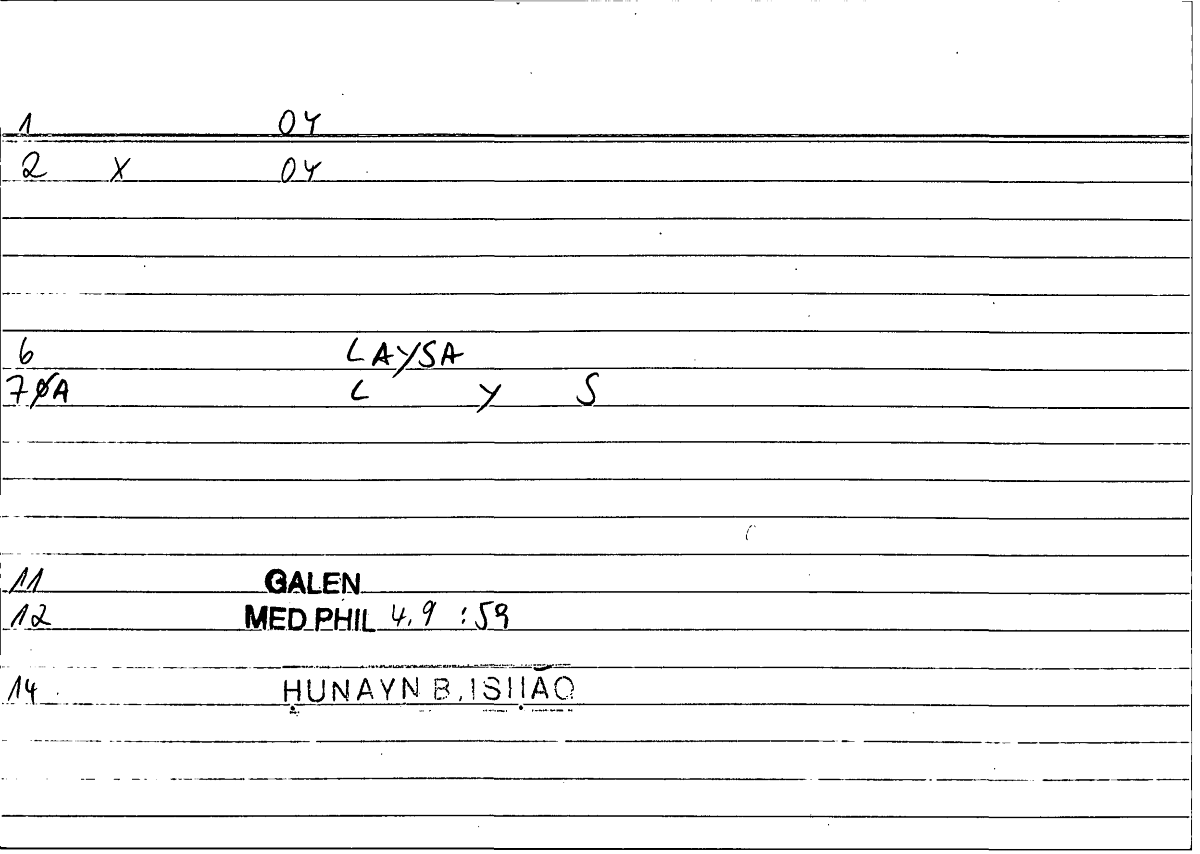 1 OY
2 X OY
6 LAYSA
7ØA L Y S
11 GALEN
12 MED PHIL 4.9 :59
14 ḤUNAYN B. ISḤĀQ